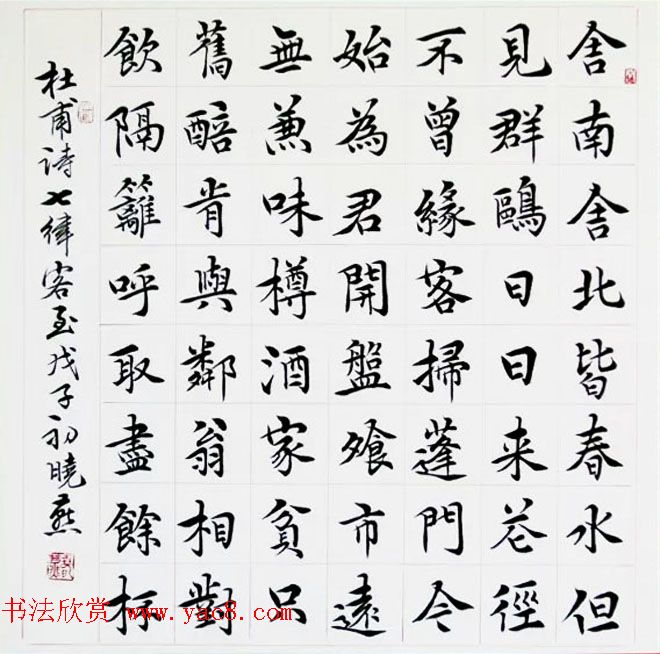 舍南舍北皆春水但
見群鷗日日来花徑
不曾緣客掃蓬門今
始為君開盤飧市遠
無兼味樽酒家貧只
舊醅肯與鄰翁相對
飲隔籬呼取盡餘杯
杜甫诗七律客至戊子初曉燕
书法欣赏 www.yac8.com